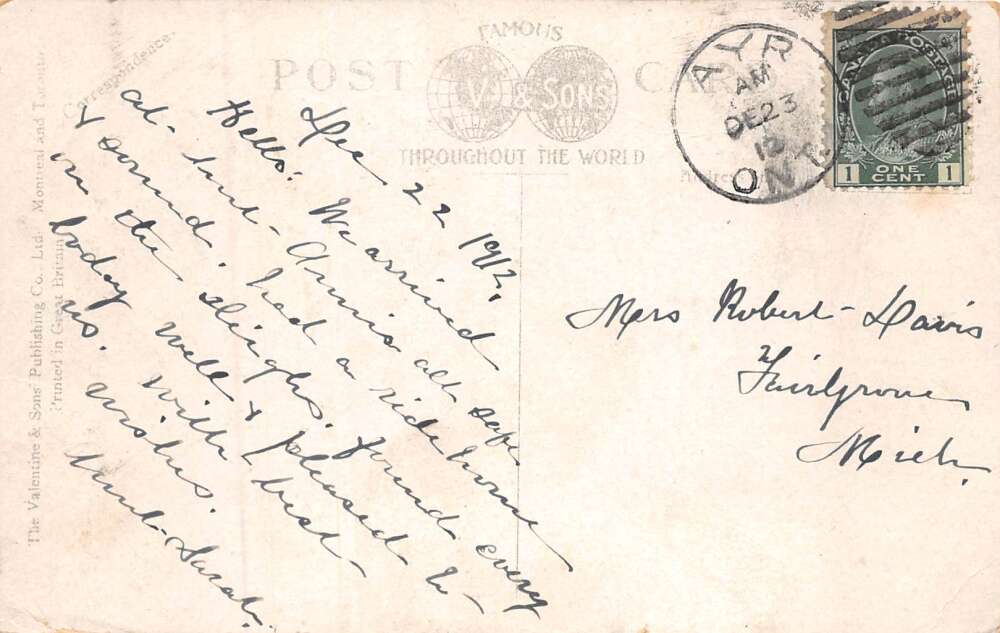 The Valentine & Sons' Publishing Co., Ltd. Montreal and Toronto.
Printed in Great Britain
Correspondence.
FAMOUS
POST CA
V. & SONS
THROUGHOUT THE WORLD
Dec 22 1912.
Hello: We arrived
at Aunt Annis all safe
& sound. had a ride home
in the sleighs. found every
body well & pleased to
us. with best
wishes.
Aunt Sarah.
AYR
AM
DE 23
12
ONT.
CANADA POSTAGE
1 ONE CENT 1
Mrs Robert Davis
Fairgrove
Mich.